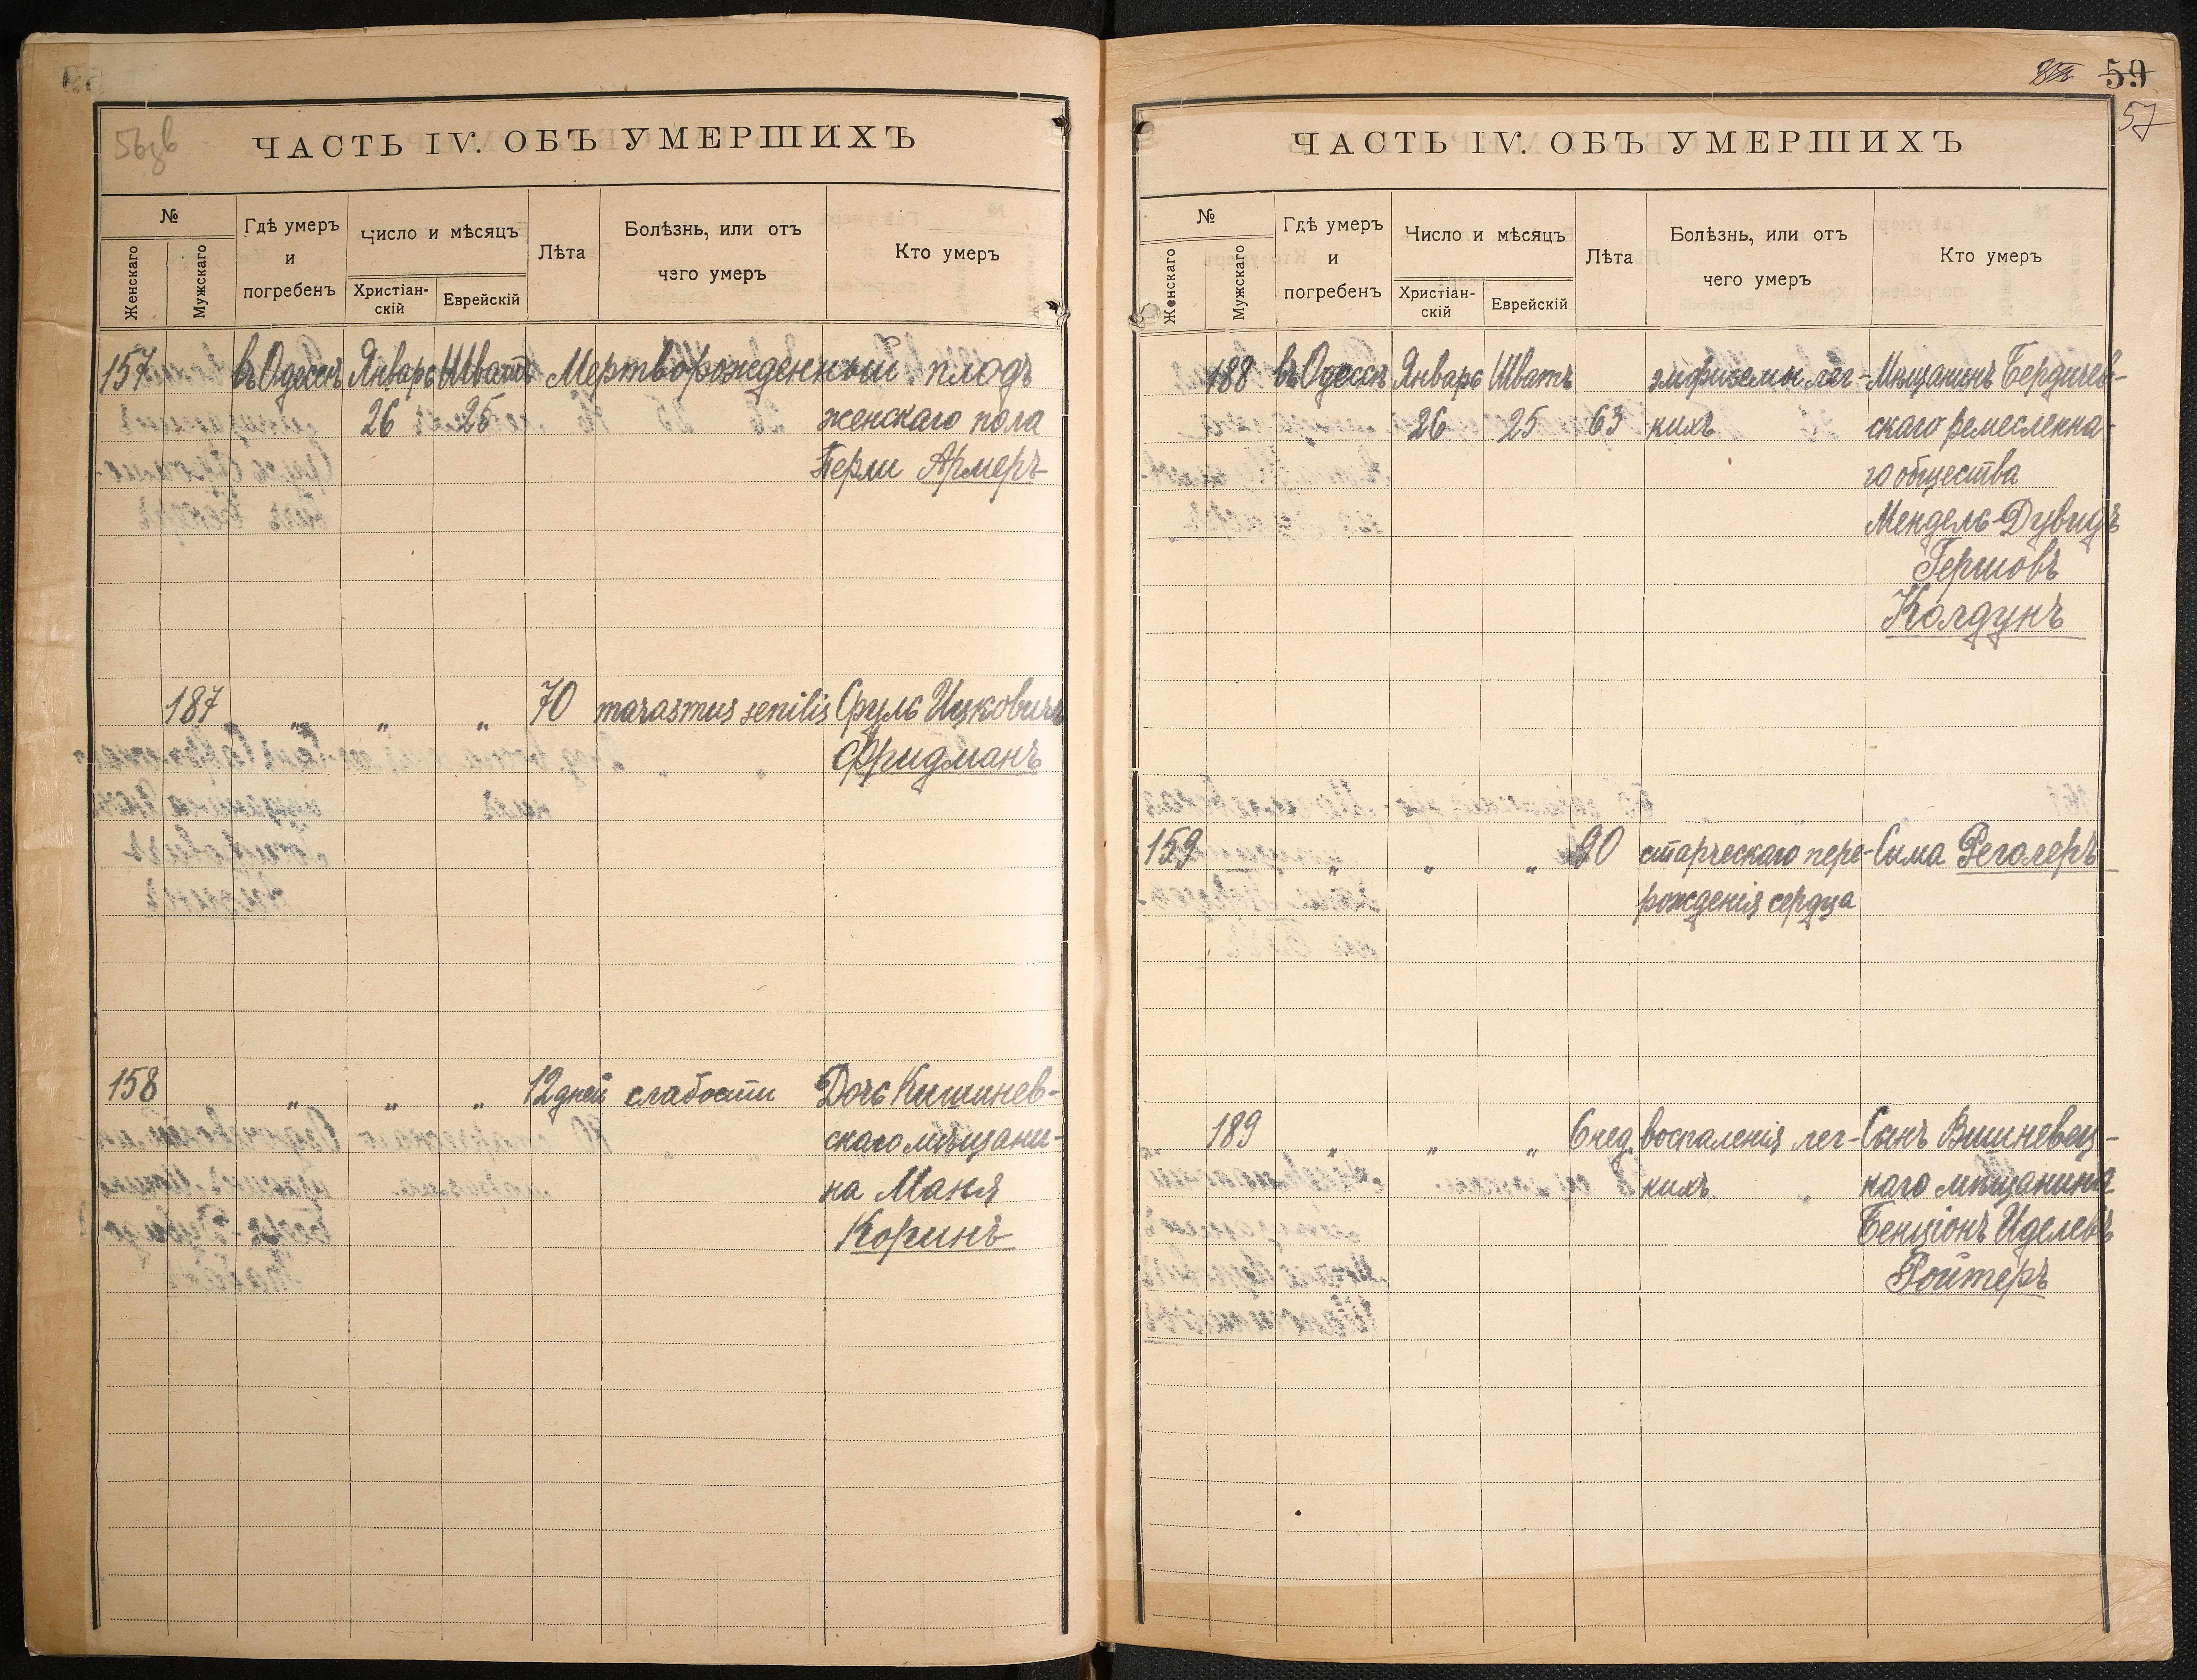 56зв
ЧАСТЬ IV. ОБЪ УМЕРШИХЪ
№
Женскаго
Мужскаго
Гдѣ умеръ
и
погребенъ
Число и мѣсяцъ
Христіан-
скій
Еврейскій
Лѣта
Болѣзнь, или отъ
чего умеръ
Кто умеръ
157 въ Одессѣ Январь Шватъ Мертворожденный плодъ
26 25 женскаго пола
Берли Армеръ
187 „ „ „ 70 marasmus senilis Сруль Ицковичъ
Фридманъ
158 „ „ „ 12 дней слабости Дочь Кишинев-
скаго мѣщани-
на Маня
Коринъ
59
57
ЧАСТЬ IV. ОБЪ УМЕРШИХЪ
№
Женскаго
Мужскаго
Гдѣ умеръ
и
погребенъ
Число и мѣсяцъ
Христіан-
скій
Еврейскій
Лѣта
Болѣзнь, или отъ
чего умеръ
Кто умеръ
188 въ Одессѣ Январь Шватъ эмфиземы лег- Мѣщанинъ Бердичев-
26 25 63 кихъ скаго ремесленна-
го общества
Мендель-Дувидъ
Гершовъ
Колдунъ
159 „ „ „ 90 старческаго пере- Сима Реголеръ
рожденія сердца
189 „ „ „ 6 нед. воспаленія лег- Сынъ Вишневец-
кихъ каго мѣщанина
Бенціонъ Иделевъ
Ройтеръ